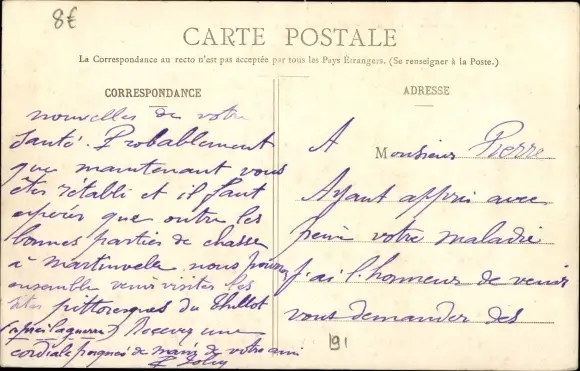 8€
CARTE POSTALE
La Correspondance au recto n'est pas acceptée par tous les Pays Étrangers. (Se renseigner à la Poste.)
CORRESPONDANCE
ADRESSE
A
Monsieur Pierre
Ayant appris avec
peine votre maladie
j'ai l'honneur de venir
vous demander des
nouvelles de votre
Santé. Probablement
que maintenant vous
êtes rétabli et il faut
espérer que outre les
bonnes parties de chasse
à Martinvelle nous pouvons
ensemble venir visiter les
sites pittoresques du Thillot
(après la guerre) Recevez une
cordiale poignée de mains de votre ami
191